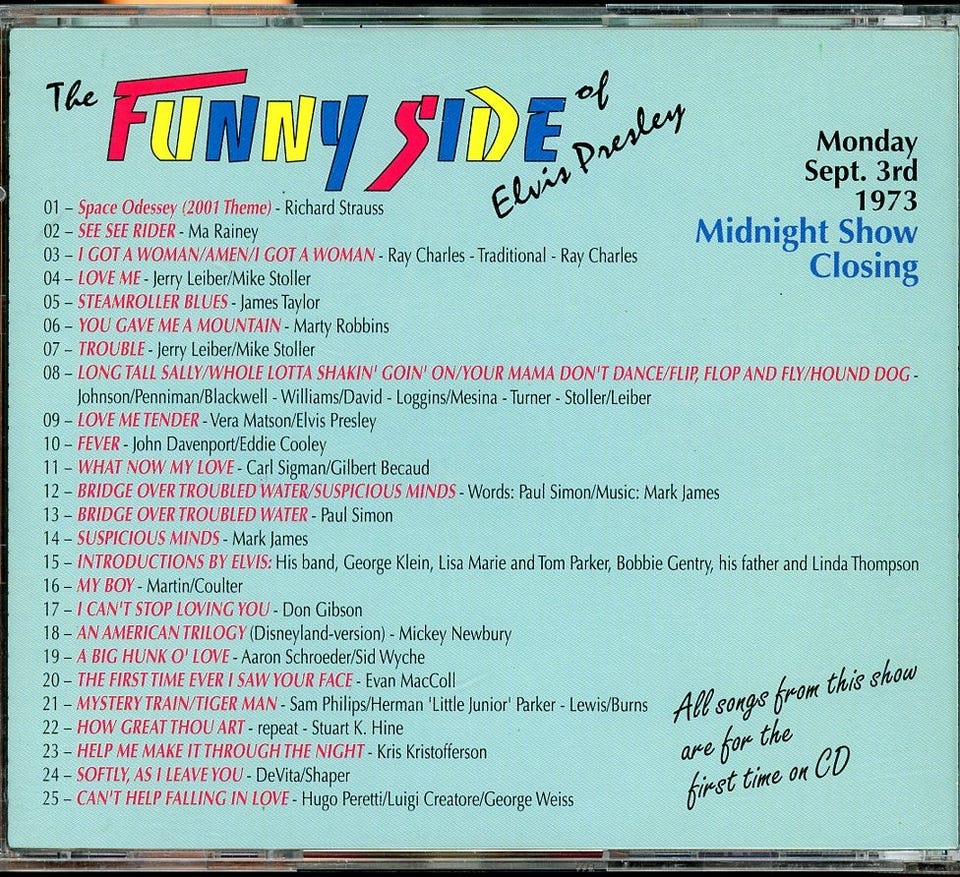 The FUNNY SIDE of
Elvis Presley
Monday
Sept. 3rd
1973
Midnight Show
Closing
01 – Space Odessey (2001 Theme) - Richard Strauss
02 – SEE SEE RIDER - Ma Rainey
03 – I GOT A WOMAN/AMEN/I GOT A WOMAN - Ray Charles - Traditional - Ray Charles
04 – LOVE ME - Jerry Leiber/Mike Stoller
05 – STEAMROLLER BLUES - James Taylor
06 – YOU GAVE ME A MOUNTAIN - Marty Robbins
07 – TROUBLE - Jerry Leiber/Mike Stoller
08 – LONG TALL SALLY/WHOLE LOTTA SHAKIN' GOIN' ON/YOUR MAMA DON'T DANCE/FLIP, FLOP AND FLY/HOUND DOG -
Johnson/Penniman/Blackwell - Williams/David - Loggins/Mesina - Turner - Stoller/Leiber
09 – LOVE ME TENDER - Vera Matson/Elvis Presley
10 – FEVER - John Davenport/Eddie Cooley
11 – WHAT NOW MY LOVE - Carl Sigman/Gilbert Becaud
12 – BRIDGE OVER TROUBLED WATER/SUSPICIOUS MINDS - Words: Paul Simon/Music: Mark James
13 – BRIDGE OVER TROUBLED WATER - Paul Simon
14 – SUSPICIOUS MINDS - Mark James
15 – INTRODUCTIONS BY ELVIS: His band, George Klein, Lisa Marie and Tom Parker, Bobbie Gentry, his father and Linda Thompson
16 – MY BOY - Martin/Coulter
17 – I CAN'T STOP LOVING YOU - Don Gibson
18 – AN AMERICAN TRILOGY (Disneyland-version) - Mickey Newbury
19 – A BIG HUNK O' LOVE - Aaron Schroeder/Sid Wyche
20 – THE FIRST TIME EVER I SAW YOUR FACE - Evan MacColl
21 – MYSTERY TRAIN/TIGER MAN - Sam Philips/Herman 'Little Junior' Parker - Lewis/Burns
22 – HOW GREAT THOU ART - repeat - Stuart K. Hine
23 – HELP ME MAKE IT THROUGH THE NIGHT - Kris Kristofferson
24 – SOFTLY, AS I LEAVE YOU - DeVita/Shaper
25 – CAN'T HELP FALLING IN LOVE - Hugo Peretti/Luigi Creatore/George Weiss
All songs from this show
are for the
first time on CD